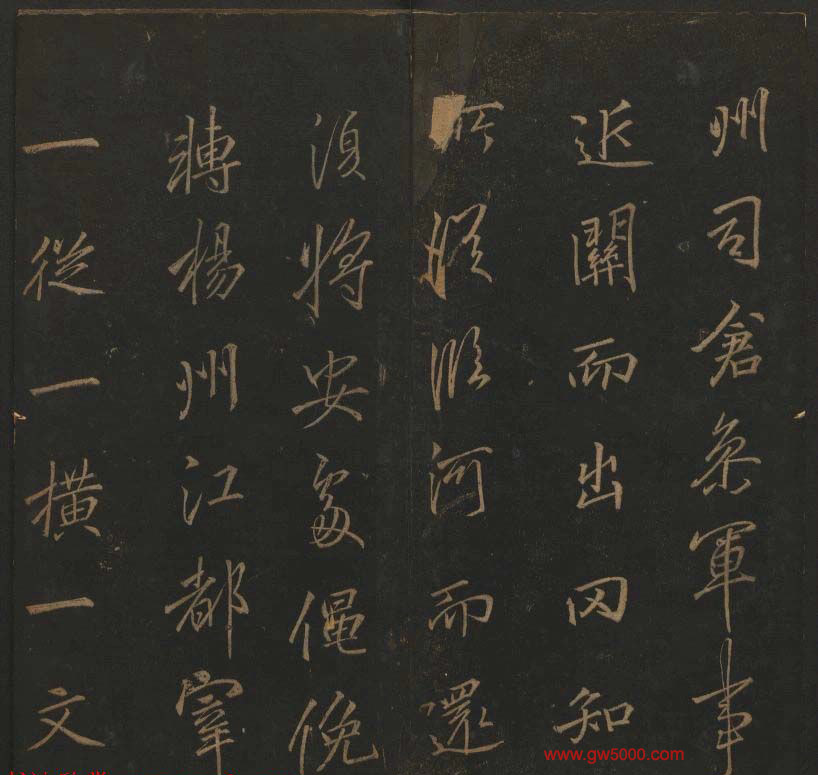 州司倉叅軍事
近關而出罔知
所從臨河而還
須將安處僶俛
轉楊州江都宰
一從一橫一文
www.gw5000.com